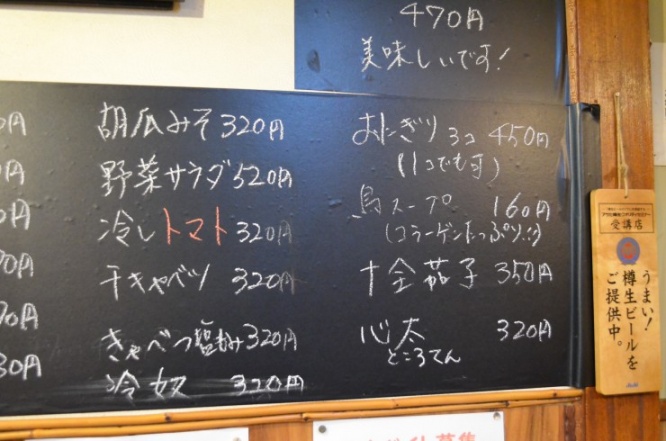 470円
美味しいです!
胡瓜みそ 320円
野菜サラダ 520円
冷しトマト 320円
干キャベツ 320円
きゃべつ塩もみ 320円
冷奴 320円
おにぎり 3コ 450円
(1つでも可)
鳥スープ 160円
(コラーゲンたっぷり!!)
十全茄子 350円
心太 320円
ところてん
0円
70円
70円
30円
受講店
うまい!
樽生ビールを
ご提供中。
募集